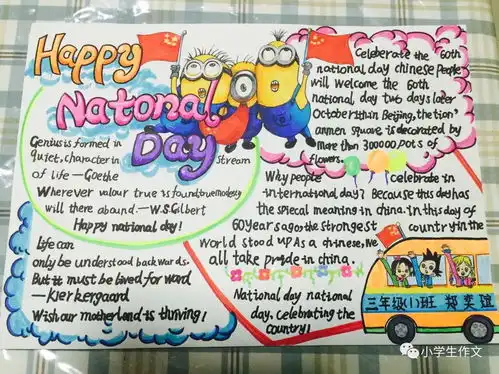 Happy
Natonal
Day
Genius is formed in
quiet, character in stream
of life — Goethe
Wherever valour true is found, true modesty
will there abound. — W.S.Gilbert
Happy national day!
Life can
only be understood backwards.
But it must be lived for ward
— Kierkergaard
Wish our motherland is thriving!
Celeberate the 60th
national day chinese people
will welcome the 60th
national day two days later
October 1th in Beijing, the tion'
anmen square is decorated by
more than 300000 pots of
flowers.
Why people celebrate in
international day? Because this day has
the spiecal meaning in china. in this day of
60 years ago the strongest country in the
world stood up As a chinese, we
all take pride in china.
National day national
day. celebrating the
country!
三年级(1)班 郑奕
小学生作文